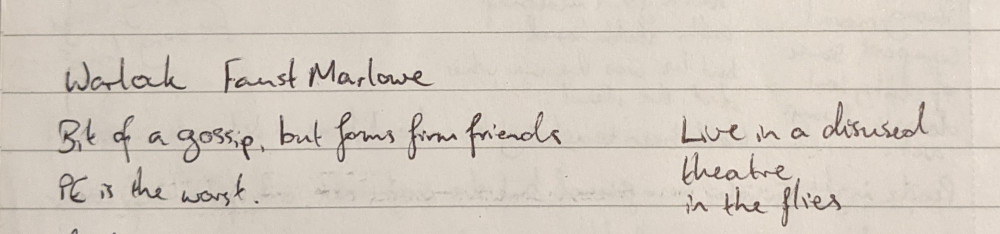 Warlock Faust Marlowe
Bit of a gossip, but forms firm friends
PE is the worst.
Live in a disused
theatre,
in the flies